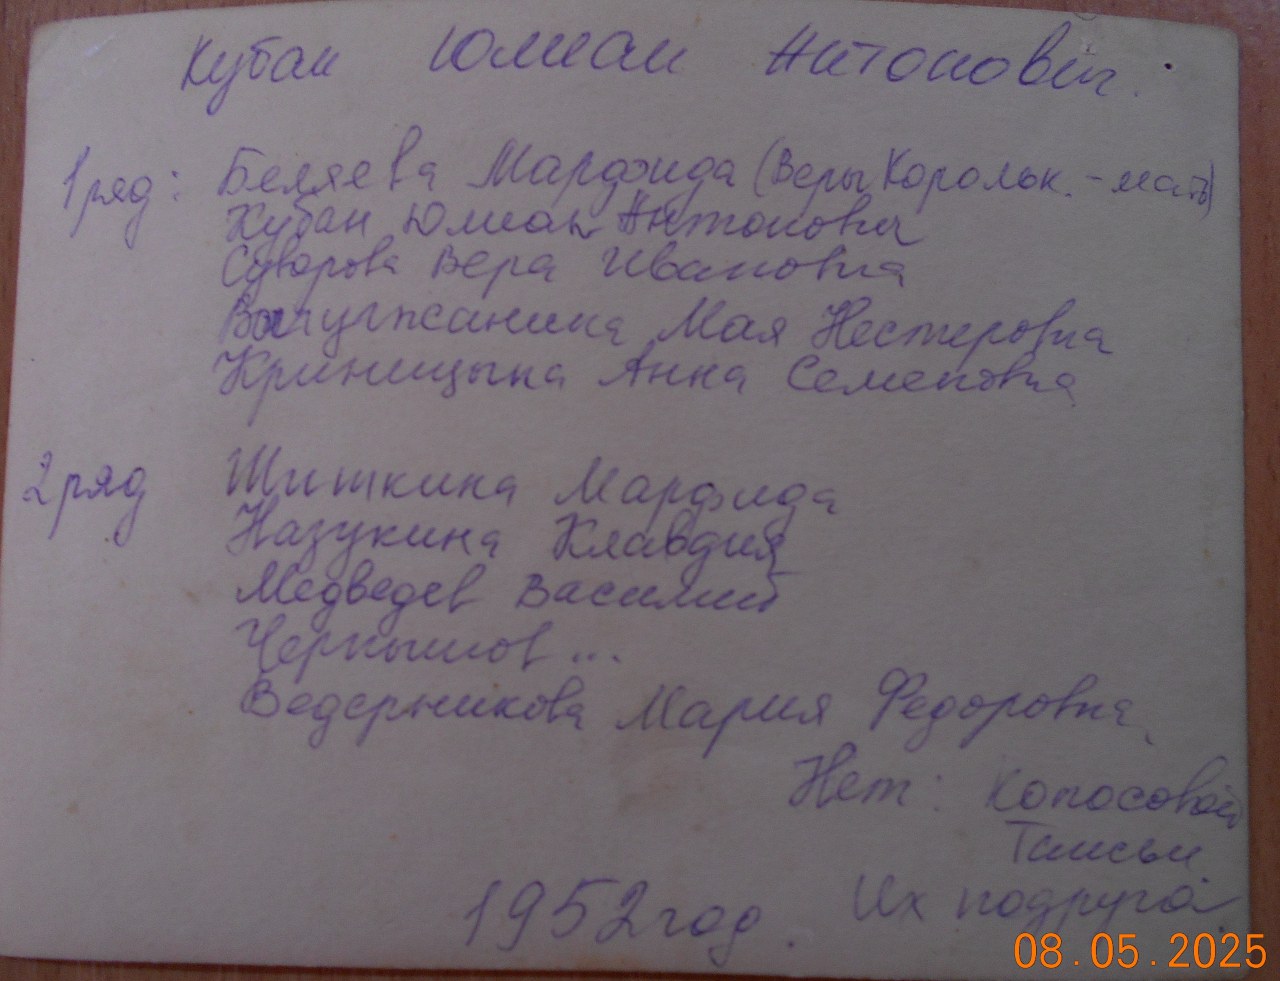 Кубан Юлиан Антонович.
1 ряд: Беляева Марфида (Веры Корольк. - мать)
Кубан Юлиан Антонович
Суворова Вера Ивановна
Вычугжанина Мая Нестеровна
Криницына Анна Семеновна
2 ряд Шишкина Марфида
Назукина Клавдия
Медведев Василий
Чернышов ...
Ведерникова Мария Федоровна
Нет: Копосовой
Таисьи
Их подруга
1952 год.
08.05.2025